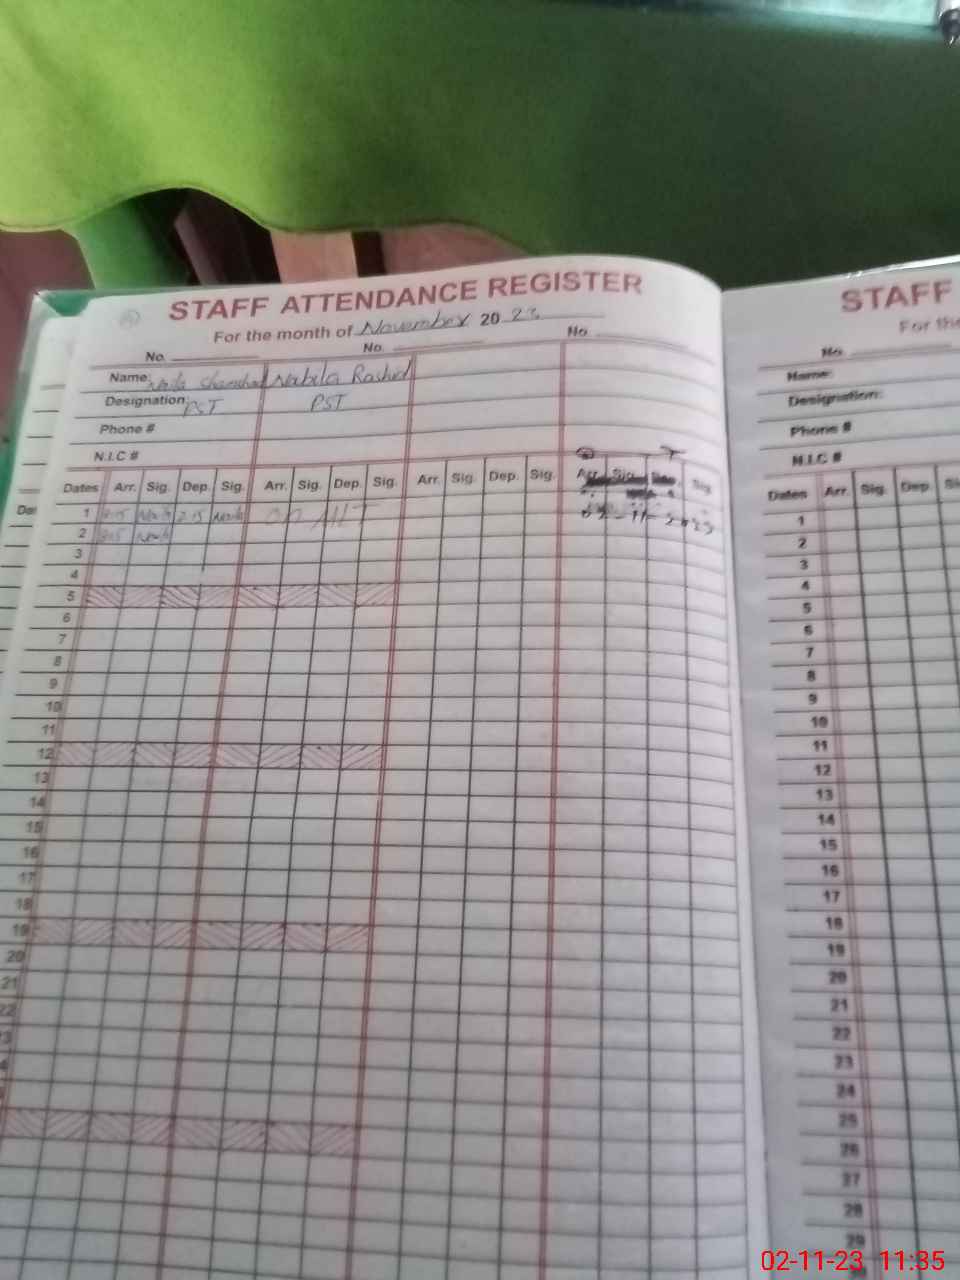 STAFF ATTENDANCE REGISTER
For the month of November 20 23
No. No. No.
Name: Naila Shamshad Nabila Rashid
Designation: PST PST
Phone #
N.I.C #
Dates Arr. Sig. Dep. Sig. Arr. Sig. Dep. Sig. Arr. Sig. Dep. Sig. Arr. Sig. Sig.
1 8:15 Naila 2:15 Naila on
2 8:15 Naila
02-11-2023
3
4
5
6
7
8
9
10
11
12
13
14
15
16
17
18
19
20
21
22
STAFF
For the
No.
Name:
Designation:
Phone #
N.I.C #
Dates Arr. Sig. Dep.
1
2
3
4
5
6
7
8
9
10
11
12
13
14
15
16
17
18
19
20
21
22
23
24
25
26
27
28
29
02-11-23 11:35